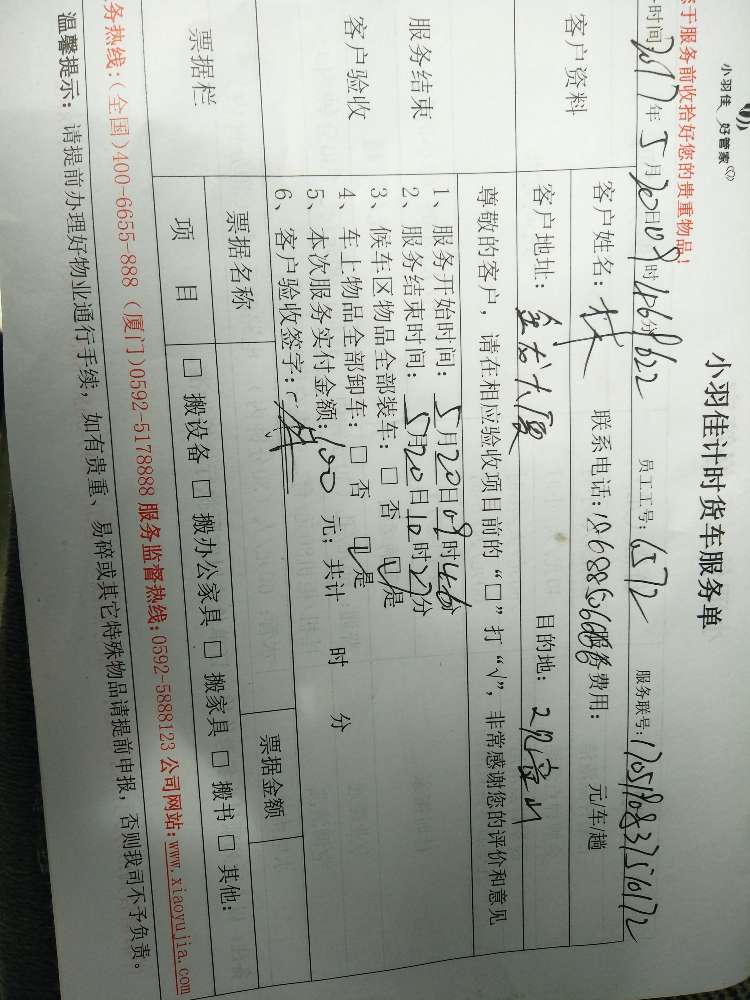 小羽佳 好管家
小羽佳计时货车服务单
于服务前收拾好您的贵重物品!
时间 2017年5月20日09时46分 员工工号: 6572 服务联号:
客户资料
客户姓名: 林 联系电话: 服务费用: 元/车/趟
客户地址: 金龙大厦 目的地:
服务结束
客户验收
尊敬的客户，请在相应验收项目前的“□”打“√”，非常感谢您的评价和意见
1、服务开始时间: 5月20日09时46分
2、服务结束时间: 5月20日10时27分
3、候车区物品全部装车: □ 否 ☑ 是
4、车上物品全部卸车: □ 否 ☑ 是
5、本次服务实付金额: 100 元; 共计 时 分
6、客户验收签字: 林
票据栏
票据名称 票据金额
项 目 □ 搬设备 □ 搬办公家具 □ 搬家具 □ 搬书 □ 其他:
务热线:(全国)400-6655-888 (厦门)0592-5178888 服务监督热线:0592-5888123 公司网站:www.xiaoyujia.com
温馨提示: 请提前办理好物业通行手续，如有贵重、易碎或其它特殊物品请提前申报，否则我司不予负责。